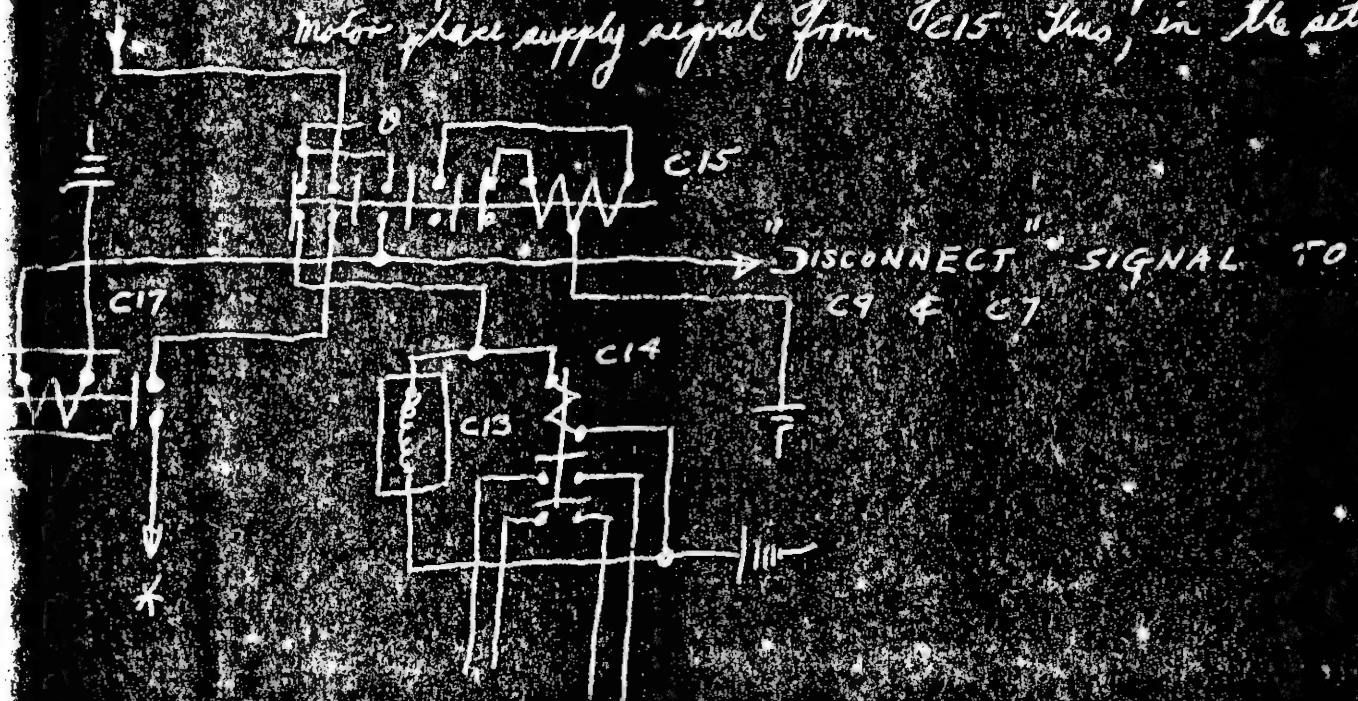 Motor phase supply signal from C15. Thus, in the set
θ
C15
"DISCONNECT" SIGNAL TO
C9 & C7
C17
C14
C13
*